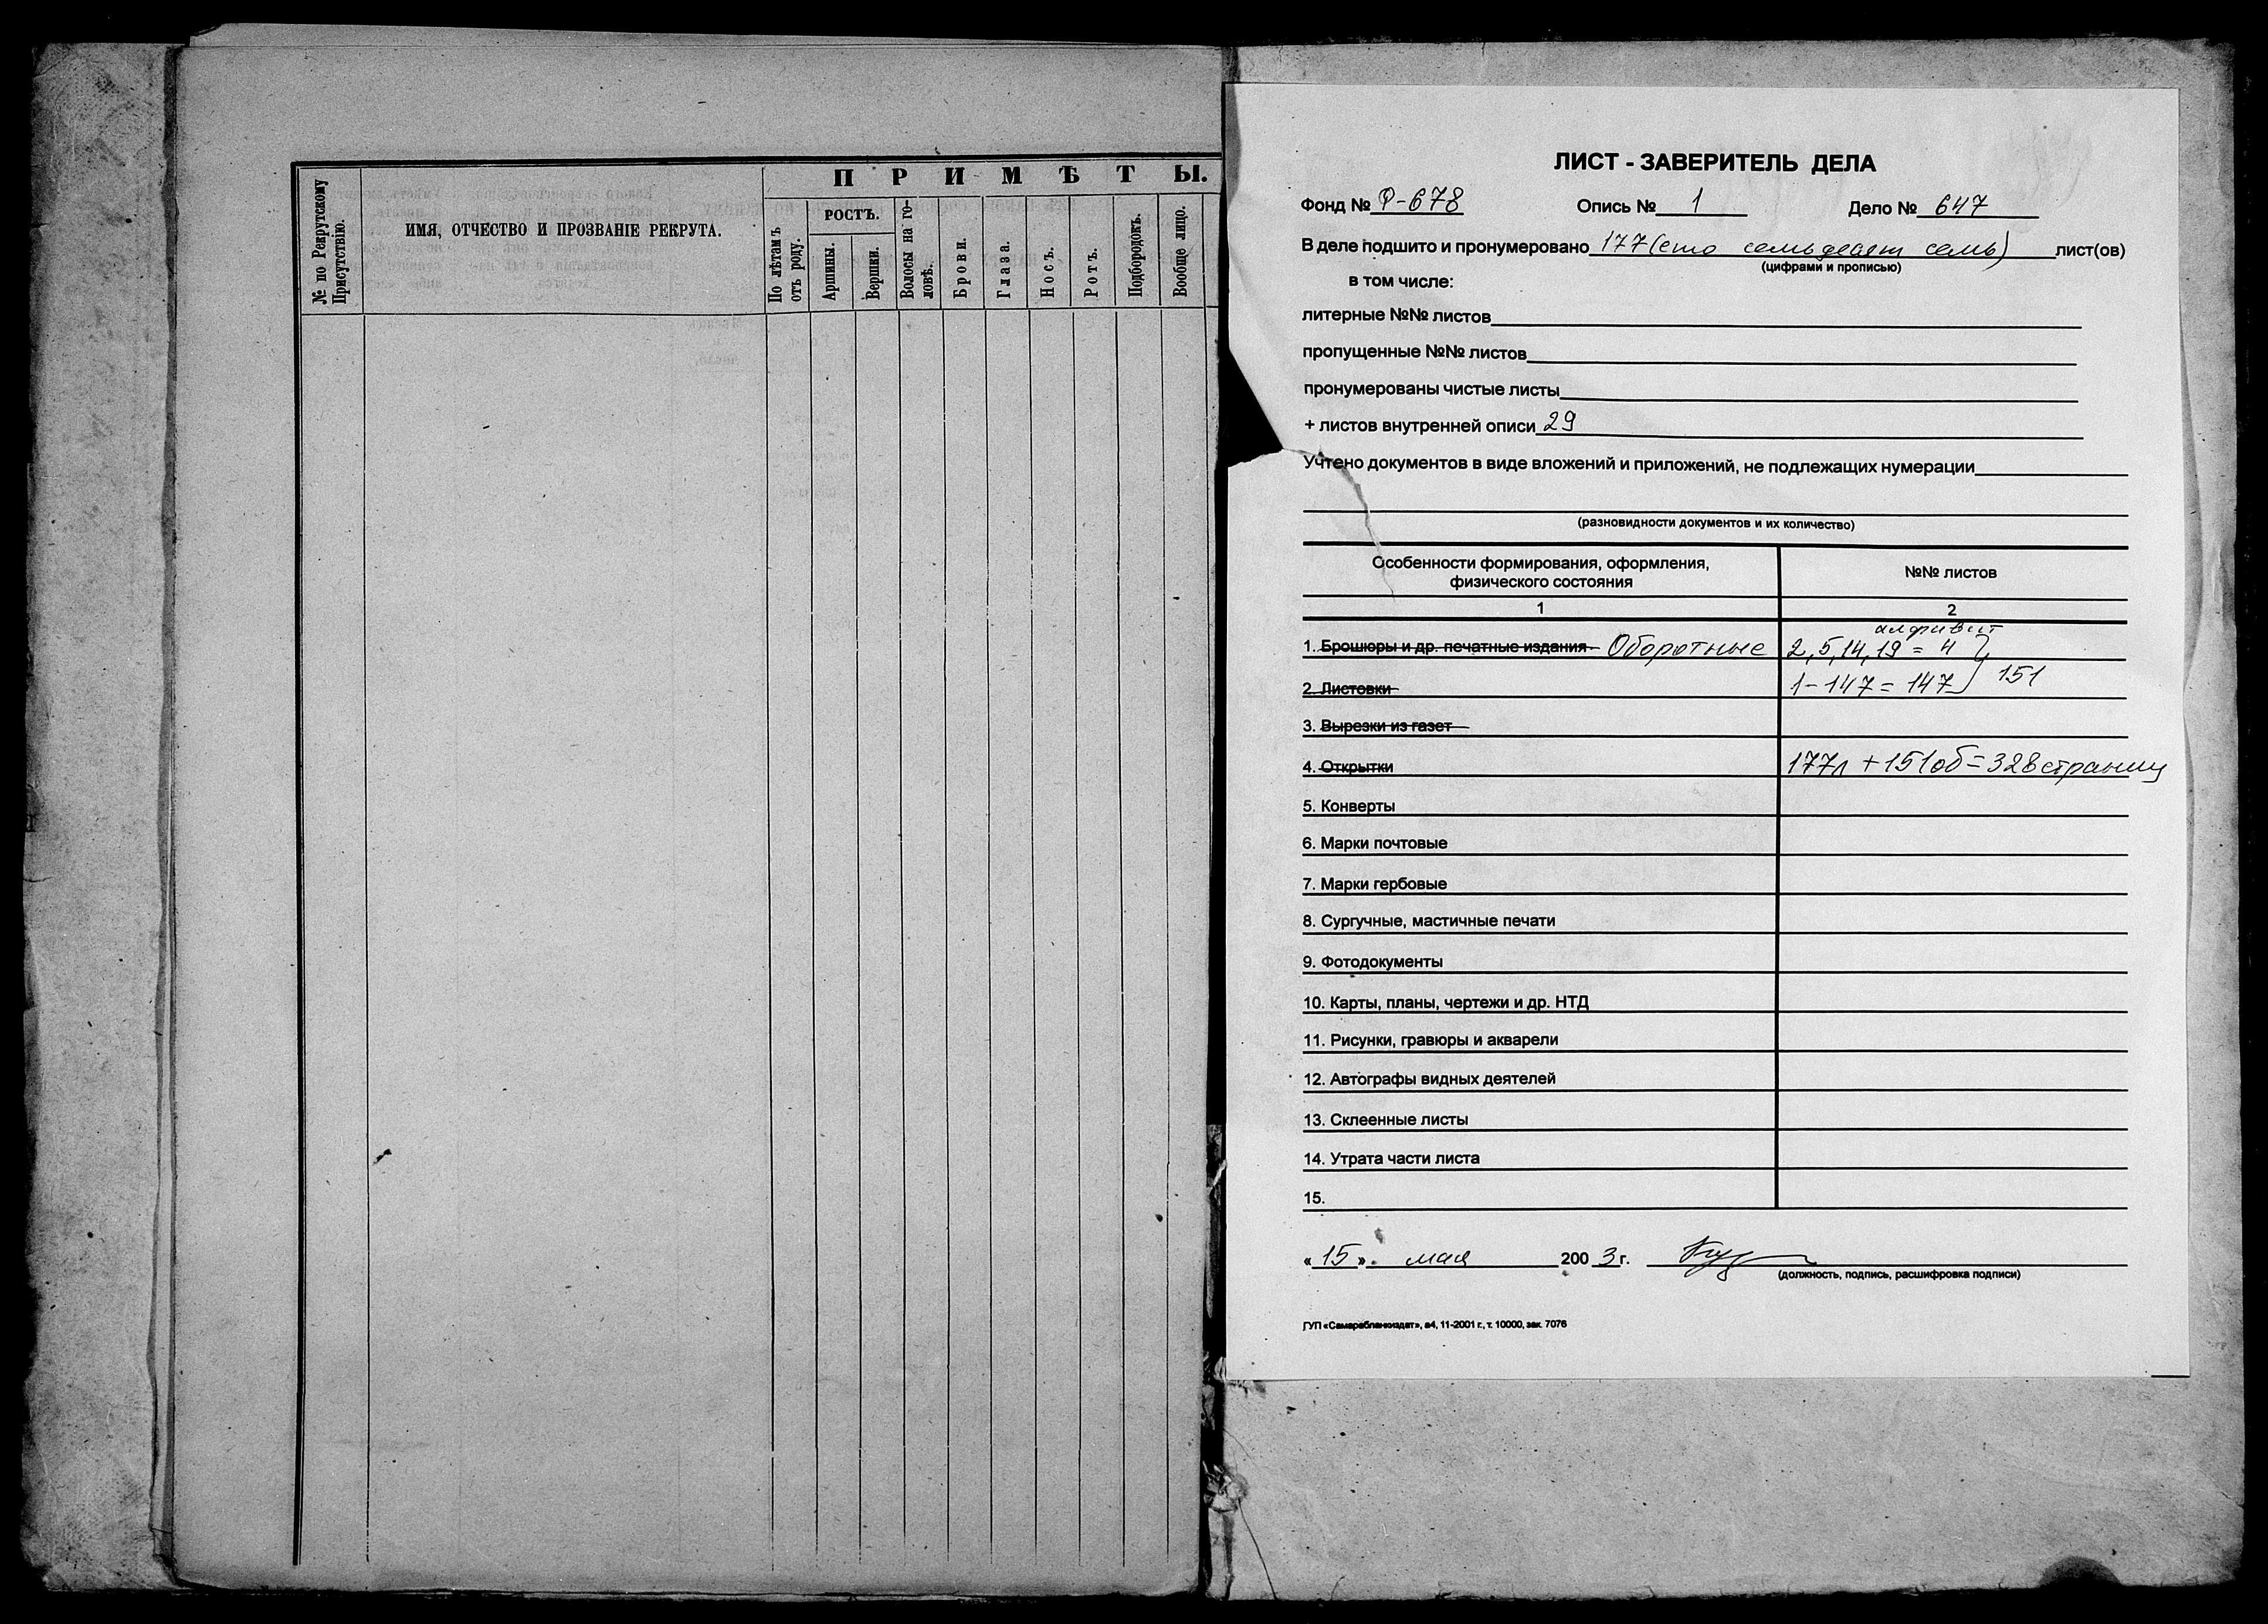 ПРИМѢТЫ.
№ по Рекрутскому Присутствію.
ИМЯ, ОТЧЕСТВО И ПРОЗВАНІЕ РЕКРУТА.
По лѣтамъ отъ роду.
РОСТЪ.
Аршины.
Вершки.
Волосы на го-
ловѣ.
Брови.
Глаза.
Носъ.
Ротъ.
Подбородокъ.
Вообще лицо.
ЛИСТ - ЗАВЕРИТЕЛЬ ДЕЛА
Фонд № Ф-678 Опись № 1 Дело № 647
В деле подшито и пронумеровано 177 (сто семьдесят семь) лист(ов)
(цифрами и прописью)
в том числе:
литерные №№ листов
пропущенные №№ листов
пронумерованы чистые листы
+ листов внутренней описи 29
Учтено документов в виде вложений и приложений, не подлежащих нумерации
(разновидности документов и их количество)
Особенности формирования, оформления,
физического состояния
№№ листов
1 2
алфавит
1. Брошюры и др. печатные издания Оборотные 2, 5, 14, 19 = 4
2. Листовки 1-147 = 147 } 151
3. Вырезки из газет
4. Открытки 177л + 151об = 328 страниц
5. Конверты
6. Марки почтовые
7. Марки гербовые
8. Сургучные, мастичные печати
9. Фотодокументы
10. Карты, планы, чертежи и др. НТД
11. Рисунки, гравюры и акварели
12. Автографы видных деятелей
13. Склеенные листы
14. Утрата части листа
15.
«15» мая 2003 г.
(должность, подпись, расшифровка подписи)
ГУП «Самарабланкиздат», а4, 11-2001 г., т. 10000, зак. 7076